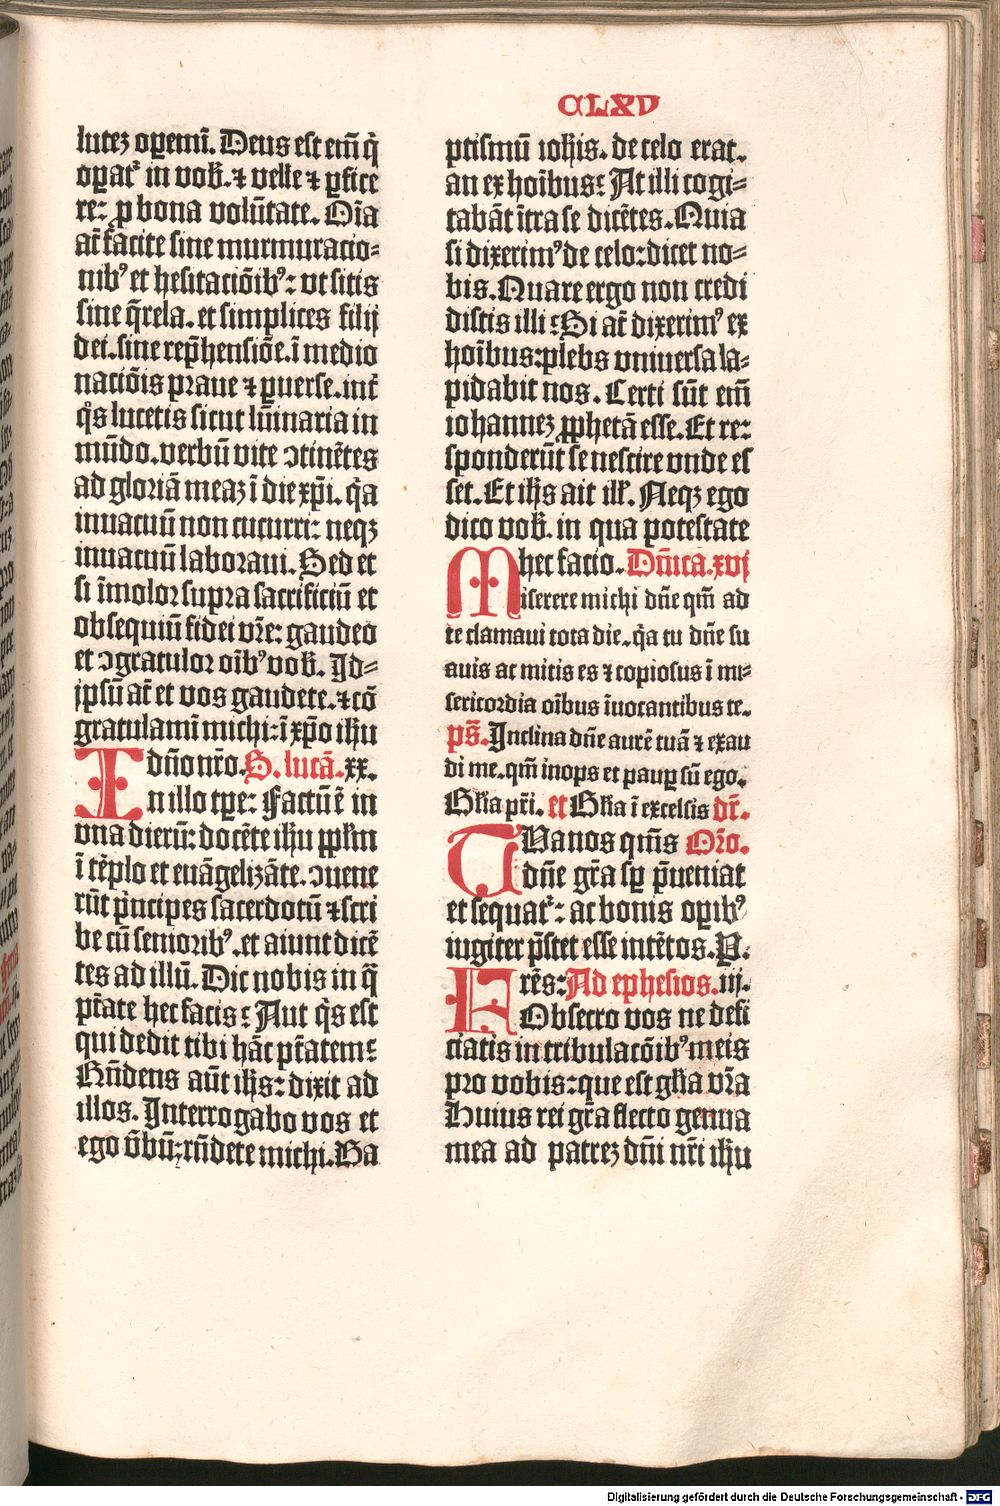 CLXV
lutez oꝑemī. Deus est em̄ q̇
oꝑat᷑ in vob̄. ⁊ velle ⁊ ꝑfice
re: ꝓ bona volūtate. Oīa
at̄ facite sine murmuracio⸗
nib⁹ et hesitaciōib⁹: vt sitis
sine q̄rela. et simplices filij
dei. sine rep̄hensiōe. ī medio
naciōis praue ⁊ ꝑuerse. int̄
q̊s lucetis sicut lūinaria in
mūdo. verbū vite ↄtinētes
ad gloriā meaz ī die xp̄i. q̄a
inuacuū non cucurri: neqꝫ
inuacuū laboraui. Sed et
si īmolor supra sacrificiū et
obsequiū fidei vr̄e: gaudeo
et ↄgratulor oīb⁹ vob̄. Id⸗
ipsū at̄ et vos gaudete. ⁊ cō
gratulamī michi: ī xp̄o ih̄u
I dn̄o nr̄o. S. lucā. xx.
n illo tꝑe: Factū ē in
vna dierū: docēte ih̄u ppl̄m
ī tēplo et euāgelizāte. ↄuene
rūt p̄ncipes sacerdotū ⁊ scri
be cū seniorib⁹. et aiunt dicē
tes ad illū. Dic nobis in q̄
pt̄ate hec facis: Aut q̇s est
qui dedit tibi hāc pt̄atem:
Rn̄dens aūt ih̄s: dixit ad
illos. Interrogabo vos et
ego v̄bū: rn̄dete michi. Ba
ptismū ioh̄is. de celo erat.
an ex hoībus: At illi cogi⸗
tabāt ītra se dicētes. Quia
si dixerim⁹ de celo: dicet no⸗
bis. Quare ergo non credi
distis illi: Si at̄ dixerim⁹ ex
hoībus: plebs vniuersa la⸗
pidabit nos. Certi sūt em̄
iohannez ꝓphetā esse. Et re:
sponderūt se nescire vnde es
set. Et ih̄s ait ill̄. Neqꝫ ego
dico vob̄. in qua potestate
hec facio. Dn̄ica. xvj
Miserere michi dn̄e qm̄ ad
te clamaui tota die. q̄a tu dn̄e su
auis ac mitis es ⁊ copiosus ī mi⸗
sericordia oībus īuocantibus te.
ps̄. Inclina dn̄e aurē tuā ⁊ exau
di me. qm̄ inops et pauꝑ sū ego.
Gl̄ia pr̄i. et Gl̄ia ī excelsis dr̄.
TVa nos qm̄s Or̄o.
dn̄e gr̄a sꝑ p̄ueniat
et sequat᷑: ac bonis oꝑib⁹
iugiter p̄stet esse intētos. P.
Frēs: Ad ephesios. iij.
Obsecro vos ne defi
ciatis in tribulacōib⁹ meis
pro vobis: que est gl̄ia vr̄a
Huius rei gr̄a flecto genua
mea ad patrez dn̄i nr̄i ih̄u
Digitalisierung gefördert durch die Deutsche Forschungsgemeinschaft - DFG